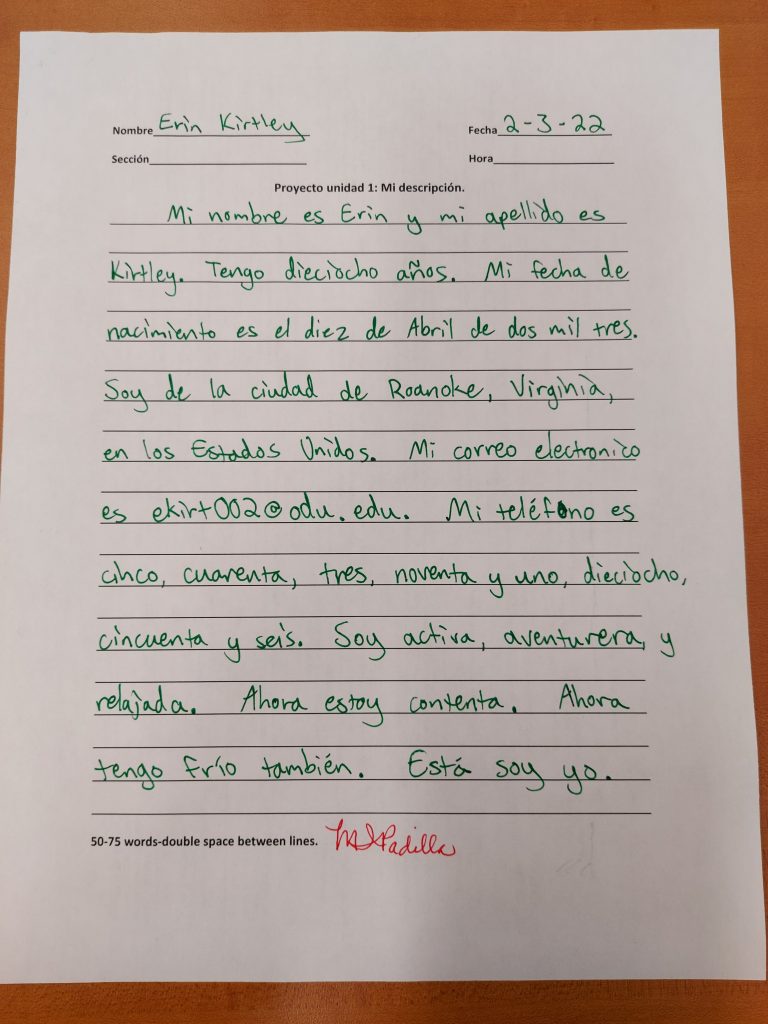 Nombre Erin Kirtley Fecha 2-3-22
Sección Hora
Proyecto unidad 1: Mi descripción.
Mi nombre es Erin y mi apellido es
Kirtley. Tengo dieciocho años. Mi fecha de
nacimiento es el diez de Abril de dos mil tres.
Soy de la ciudad de Roanoke, Virginia,
en los Estados Unidos. Mi correo electronico
es ekirt002@odu.edu. Mi teléfono es
cinco, cuarenta, tres, noventa y uno, dieciocho,
cincuenta y seis. Soy activa, aventurera, y
relajada. Ahora estoy contenta. Ahora
tengo frío también. Está soy yo.
50-75 words-double space between lines. Padilla